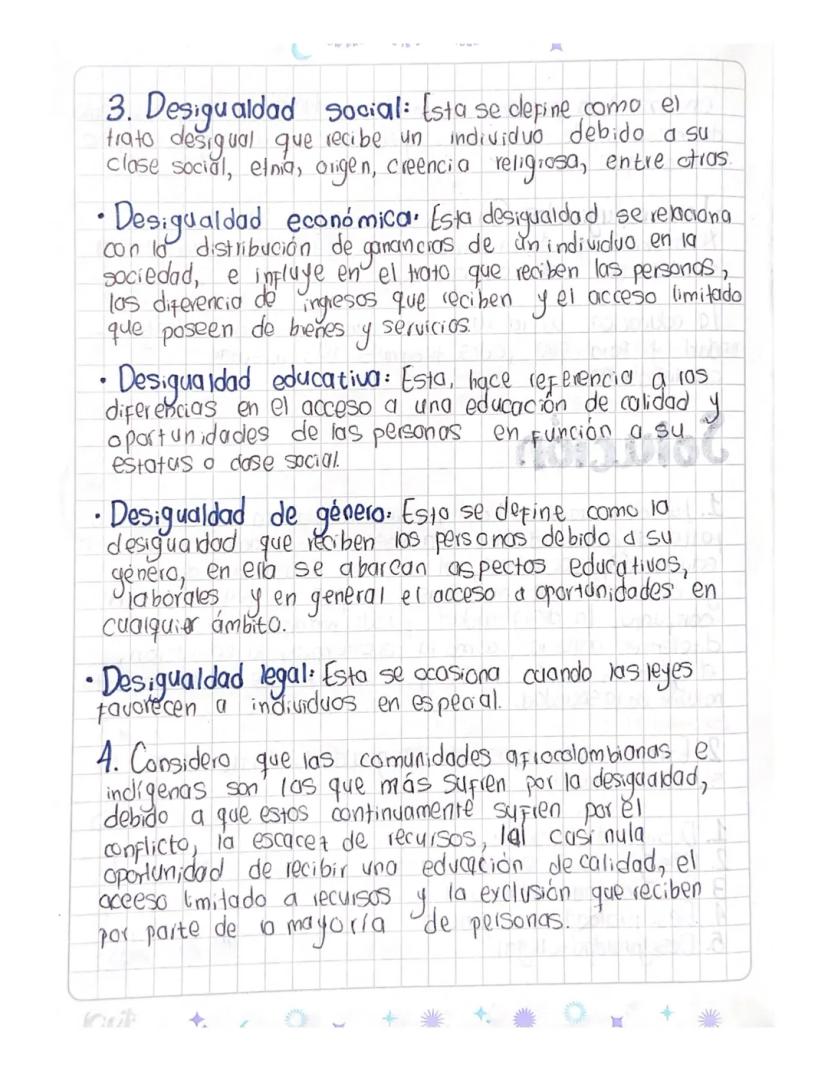 3. Desigualdad social: Esta se define como el
trato desigual que recibe un individuo debido a su
clase social, etnia, origen, creencia religiosa, entre otras.
• Desigualdad económica: Esta desigualdad se relaciona
con la distribución de ganancias de un individuo en la
sociedad, e influye en el trato que reciben las personas,
las diferencia de ingresos que reciben y el acceso limitado
que poseen de bienes y servicios.
• Desigualdad educativa: Esta, hace referencia a las
diferencias en el acceso a una educación de calidad y
oportunidades de las personas en función a su
estatus o clase social.
• Desigualdad de género: Esta se define como la
desigualdad que reciben las personas debido a su
género, en ella se abarcan aspectos educativos,
laborales y en general el acceso a oportunidades en
cualquier ámbito.
• Desigualdad legal: Esta se ocasiona cuando las leyes
favorecen a individuos en especial.
4. Considero que las comunidades afrocolombianas e
indígenas son las que más sufren por la desigualdad,
debido a que estos continuamente sufren por el
conflicto, la escacez de recursos, lal casi nula
oportunidad de recibir una educación de calidad, el
acceso limitado a recursos y la exclusión que reciben
por parte de la mayoría de personas.